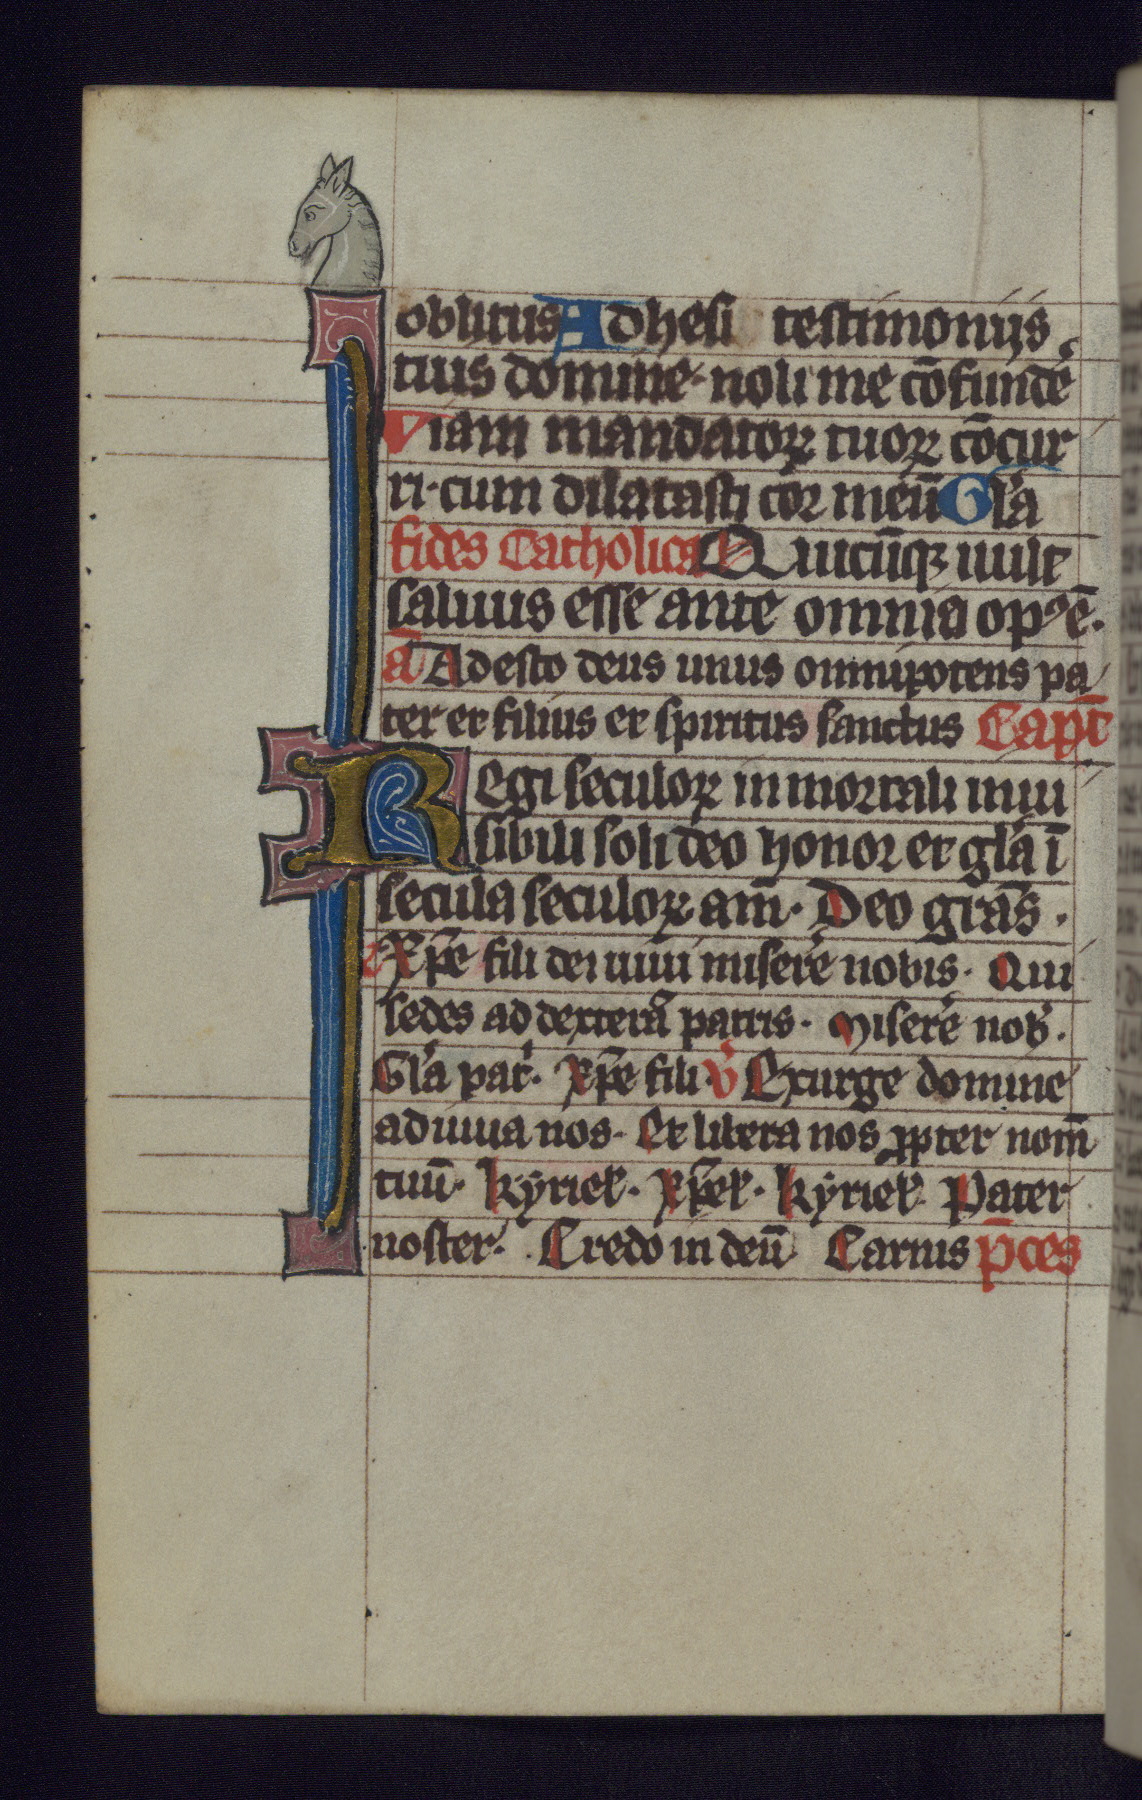 oblitus Adhesi testimoniis
tuis domine noli me cōfundē
Viam mandatoꝝ tuoꝝ cōcur
ri·cum dilatasti cor meū Gl'a
fides Catholica Quicūqꝫ uult
saluus esse ante omnia opꝰ ē·
a͞ Adesto deus unus omnipotens pa
ter et filius et spiritus sanctus Capt̄
Regi seculoꝝ inmortali inui
sibili soli deo honor et gl'a ī
secula seculoꝝ am̄· Deo gr̄as·
Xp̄e fili dei uiui misere͛ nobis· Qui
sedes ad dexterā patris· Misere͛ nob'·
Gl'a pat'· Xp̄e fili· v̓ Exurge domine
adiuua nos· Et libera nos ꝓpter nom̄
tuū· kyriel'· Xp̄el'· kyriel' Pater
noster· Credo in deū Carnis p̄ces